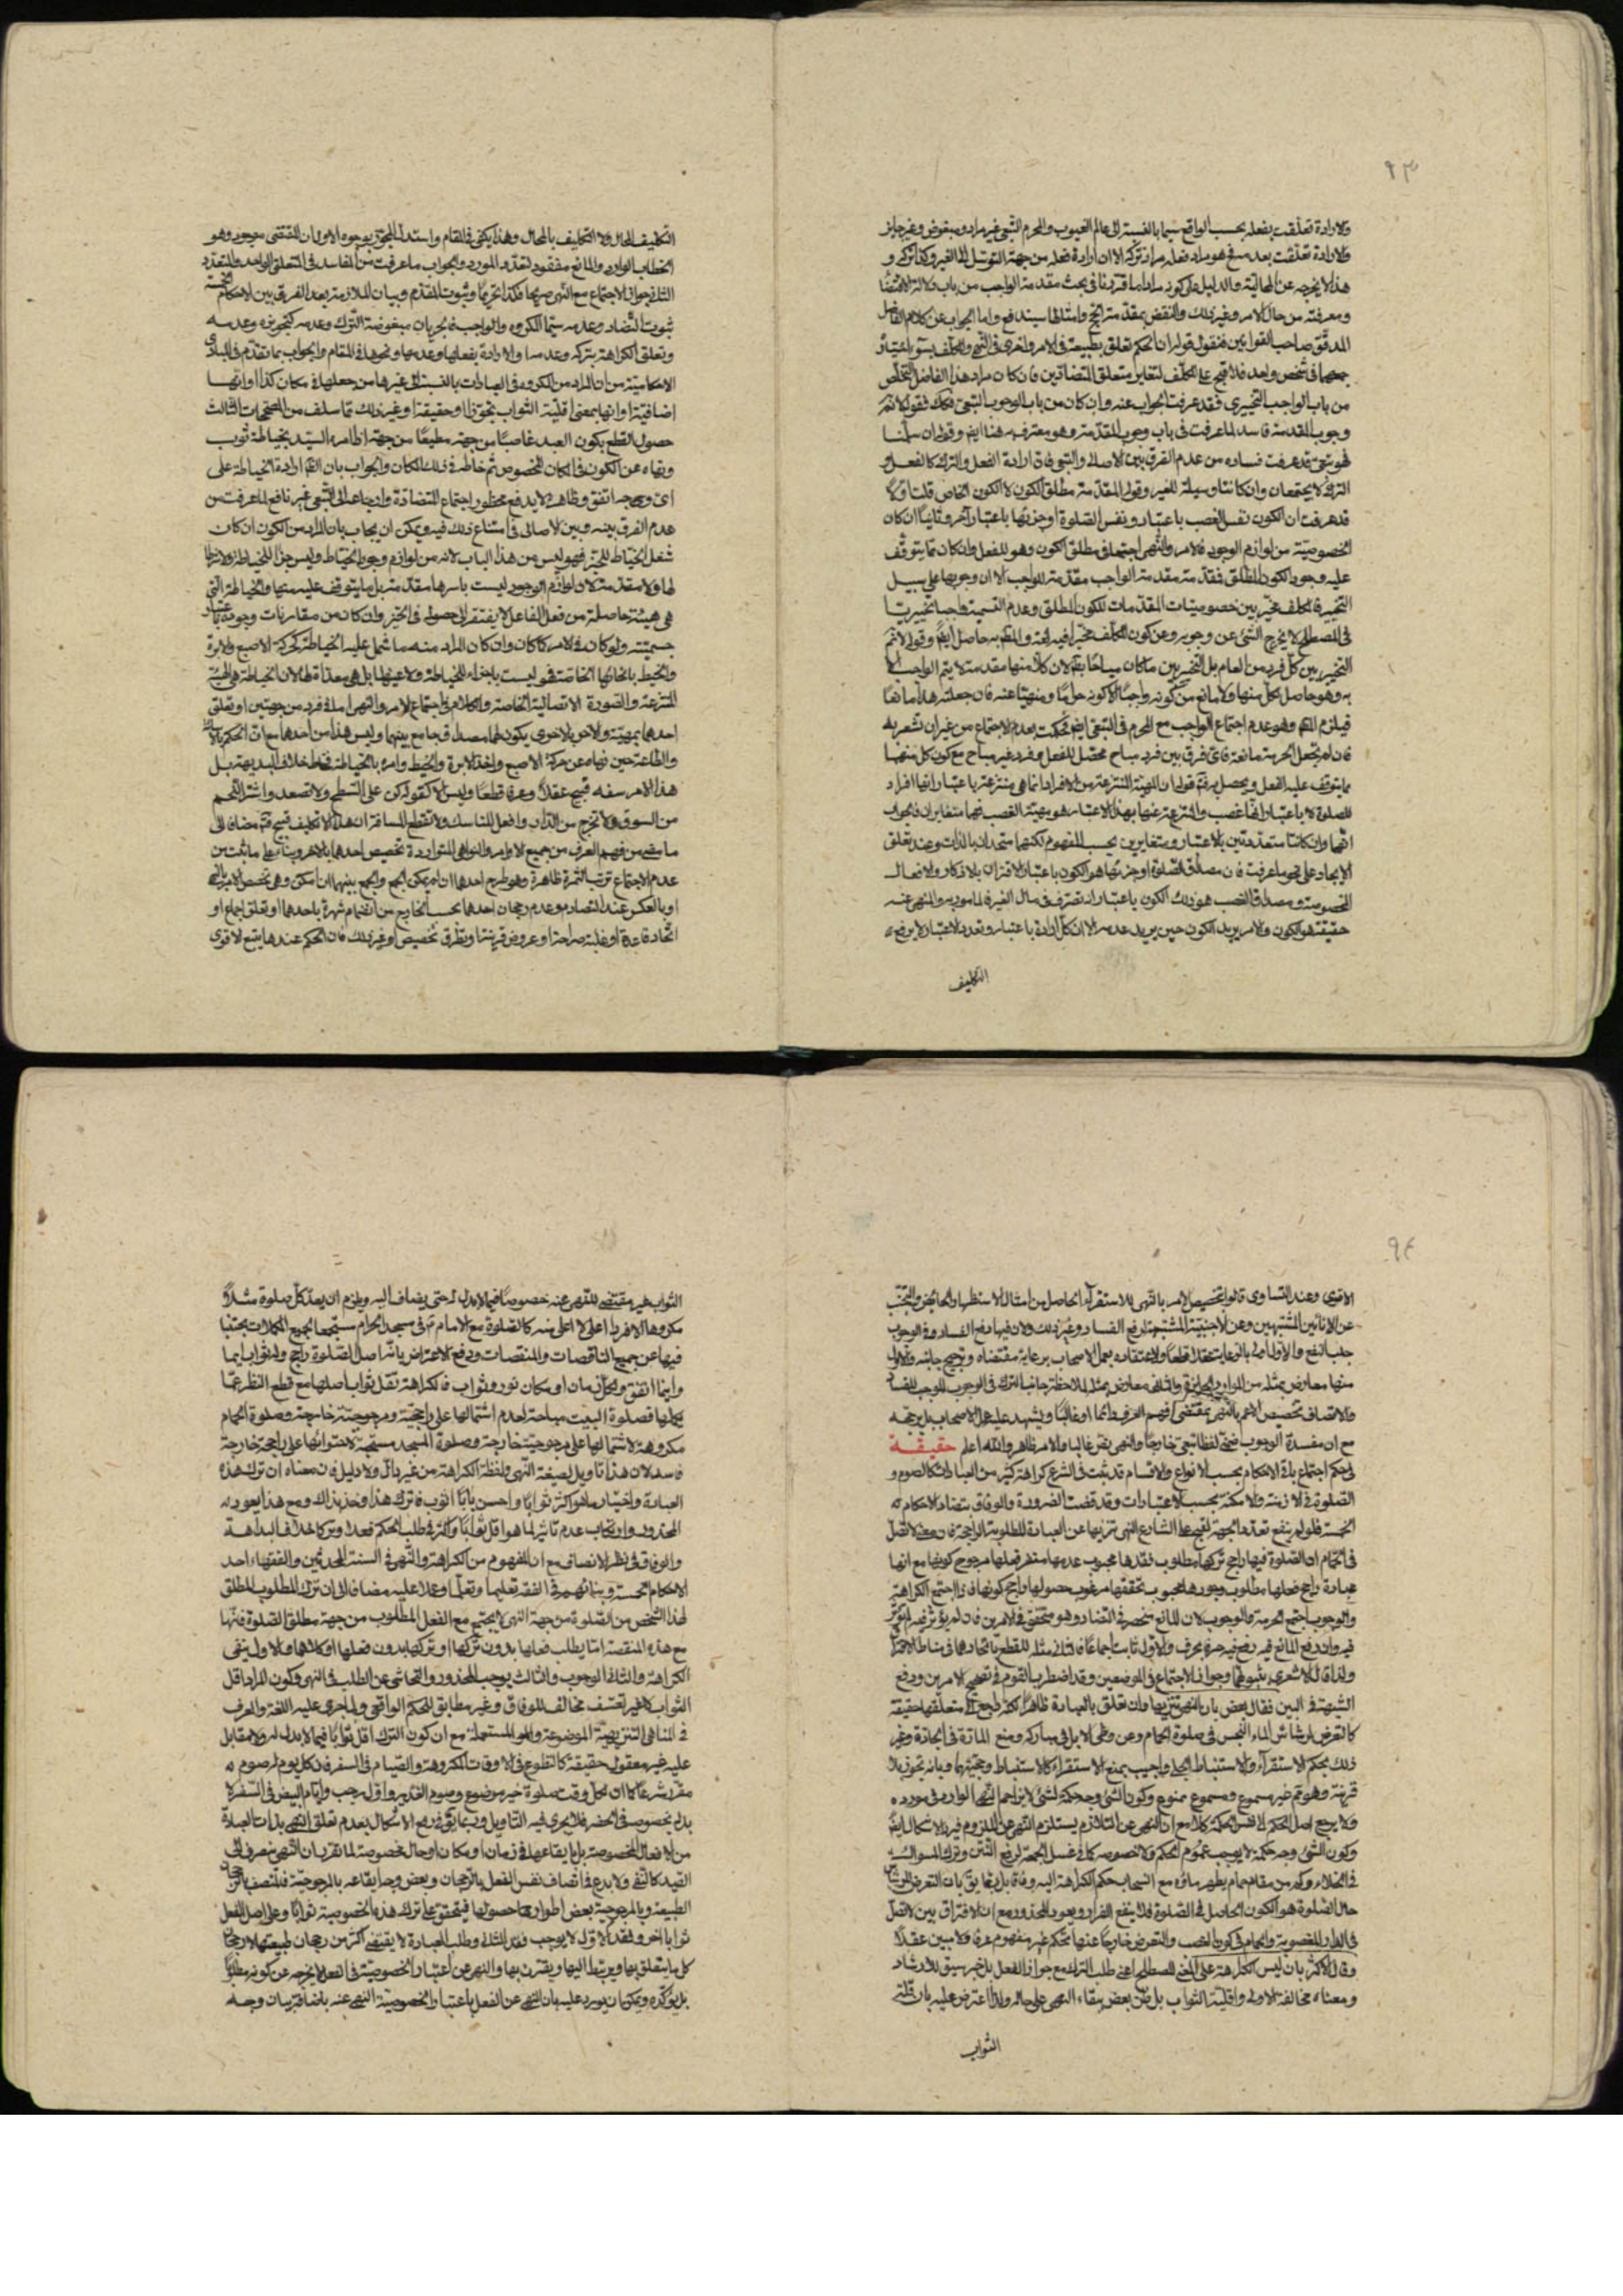 ٩٣
ولارادة تعلّقت بفعله بحسب الواقع سيما بالنسبة الى عالم الغيوب والمحرم التبعى غير مراد ومبغوض وغير جايز
ولارادة تعلّقت بعدمه فهو مراد فعله مراد تركه الا ان ارادة فعله من جهة التوسّل الى الغير وكذا تركه و
هذا لا يخرجه عن المحالية والدليل على كونه مرادا ما قررنا فى بحث مقدمة الواجب من باب دلالة الاقتضا
ومعرفته من حال الامر وغير ذلك والنقض بمقدمة الحج وامثالها سيندفع واما الجواب عن كلام الفاضل
المدقق صاحب القوانين فنقول قوله ان الحكم تعلق بطبيعة فى الامر واخرى فى النهى والمكلف بسوء اختياره
جمعهما فى شخص واحد فلا قبح على المكلّف لتغاير متعلق المتضادين فان كان مراد هذا الفاضل التخلّص
من باب الواجب التخييرى فقد عرفت الجواب عنه وان كان من باب الوجوب التبعى فكك فقوله لا نم
وجوب المقدمة فاسد لما عرفت فى باب وجوب المقدمة وهو معترف به هنا ايض وقوله ان سلّمنا
فهو تبعىّ قد عرفت فساده من عدم الفرق بين الاصلى والتبعى فان ارادة الفعل والترك كالفعل و
الترك لا يجتمعان وان كانتا وسيلة للغير وقوله المقدمة مطلق الكون لا الكون الخاص قلت اولا
قد عرفت ان الكون نفس الغصب باعتبار ونفس الصلوة او جزئها باعتبار آخر وثانيا ان كان
الخصوصية من لوازم الوجود فالامر والنهى اجتمعا فى مطلق الكون وهو للفعل وان كان مما يتوقف
عليه وجود الكون المطلق فمقدمة مقدمة الواجب مقدمة للواجب الا ان وجوبها على سبيل
التخيير فالمكلف مخيّر بين خصوصيات المقدمات للكون المطلق وعدم التسمية واجبا تخييريا
فى المصطلح لا يخرج الشئ عن وجوبه وعن كون المكلف مخيرا فيه لغة والمط به حاصل ايض وقوله لا نم
التخيير بين كلّ فرد من العام بل التخيير بين ما كان مباحا بقم لان كلا منها مقدمة لا يتم الواجب الا
به وهو حاصل بكل منها ولا مانع من كونه واجبا الا كونه حراما ومنهيا عنه فان جعلته هذا مانعا
فيلزم المط وهو عدم اجتماع الواجب مع المحرم فى التبعى ايض فحكمت بعدم الاجتماع من غير ان تشعر به
فان لم تجعل الحرمة مانعة فاى فرق بين فرد مباح محصّل للفعل وفرد غير مباح مع كون كل منهما
مما يتوقف عليه الفعل ويحصل به ثم قوله ان الهيئة المنتزعة من الافراد انما هى منتزعة باعتبار انها افراد
للصلوة لا باعتبار انها غصب والمنتزعة عنها بهذا الاعتبار هو مهية الغصب فهما متغايران فالجواب
انهما وان كانتا متعددتين بالاعتبار ومتغايرين بحسب المفهوم لكنهما متحدان بالذات وعند تعلق
الايجاد على نحو ما عرفت فان مصداق الصلوة او جزئها هو الكون باعتبار الاقتران بالاذكار والافعال
المخصوصة ومصداق الغصب هو ذلك الكون باعتبار انه تصرّف فى مال الغير فالمامور به والمنهى عنه
حقيقة هو الكون والامر يريد الكون حين يريد عدمه الا ان كل ارادة باعتبار وتعدد الاعتبار لا يرفع
التكليف
التكليف المحال ولا التكليف بالمحال وهذا يكفى فى المقام واستدل المجوّز بوجوه الاول ان المقتضى موجود وهو
الخطاب الوارد والمانع مفقود لتعدّد المورد والجواب ما عرفت من المفاسد فى المتعلق الواحد والمتعدد
الثانى جواز الاجتماع مع النهى صريحا فكذا تحريما وثبوت المقدم وبيان الملازمة بعدم الفرق بين الاحكام الخمسة
ثبوت التضاد وعدمه سيما المكروه والواجب فى جريان مبغوضة الترك وعدمه كتجويزه وعدمه
وتعلق الكراهة بتركه وعدمها والارادة بفعلها وعدمها ونحوها فى المقام والجواب بما تقدم فى المبادى
الاحكامية من ان المراد من المكروه فى العبادات بالنسبة الى غيرها من جعلها فى مكان كذا او انها
اضافية او انها بمعنى اقلّية الثواب تجوّزا او حقيقة او غير ذلك مما سلف من التصحيحات الثالث
حصول القطع بكون العبد عاصيا من جهة مطيعا من جهة اذا امره السيّد بخياطة ثوب
ونهاه عن الكون فى المكان المخصوص ثم خاطه فى ذلك المكان والجواب بان القم ارادة الخياطة على
اىّ وجه اتفق وظاهره لا يدفع محظور اجتماع المتضادة وارجاعه الى التّبعى غير نافع لما عرفت من
عدم الفرق بينه وبين الاصلى فى امتناع ذلك فيه ويمكن ان يجاب بان المراد من الكون ان كان
شغل الخياط للحيّز فهو ليس من هذا الباب لانه من لوازم وجود الخياط وليس جزءا للخياطة ولا شرطا
لها ولا مقدمة لان لوازم الوجود ليست باسرها مقدمة بل ما يتوقف عليه منها والخياطة التى
هى هيئة حاصلة من فعل الفاعل لا يفتقر الى حصوله فى الحيّز وان كان من مقارنات وجوده باعتبار
جسميته ولو كان فالامر كما كان وان كان المراد منه ما شمل عليه الخياطة كحركة الاصبع والابرة
والخيط بانحائها الخاصة فهو ليست باجزاء للخياطة ولا عينها بل هى معدّات لها لان الخياطة هى الهيئة
المنتزعة والصورة الاتصالية الخاصة والكلام فى اجتماع الامر والنهى اما فى فرد من جهتين او تعلق
احدهما بمهيّة والآخر بالاخرى يكون لهما مصداق جامع بينهما وليس هذا من احدهما مع انّ الحكم بالامتثال
والطاعة حين نهاه عن حركة الاصبع واخذ الابرة والخيط وامره بالخياطة فقط خلاف البديهة بل
هذا الامر سفه قبيح عقلا وعرفا قطعا وليس الا كقوله كن على السّطح ولا تصعد واشتر اللّحم
من السوق ولا تخرج من الدّار وافعل المناسك ولا تقطع المسافة ان هذا الا تكليف قبيح ثم مضافا الى
ما مضى من فهم العرف من جميع الاوامر والنواهى المتواردة تخصيص احدهما بالاخر وبناء على ما ثبت من
عدم الاجتماع ترتب الثمرة ظاهرة وهو طرح احدهما ان لم يمكن الجمع والجمع بينهما ان امكن وهى تخصيص الامر بالنهى
او بالعكس عند التصادم وعدم رجحان احدهما بحسب الخارج من انضمام شهرة باحدهما او تعلق اجماع او
اتّحاد قاعدة او غلبة صراحة او عروض قرينة او تطرق تخصيص او غير ذلك فان الحكم عندها يتبع الاقوى
٩٤
الاقوى وعند التساوى قالوا بتخصيص الامر بالنهى للاستقراء الحاصل من امثال الاستظهار والحائض والتجنب
عن الانائين المشتبهين وعن الاجنبيّة المشتبهة لرفع الفساد وغير ذلك ولان فيها دفع الفساد وفى الوجوب
جلب النفع والاول اولى بالرعاية عقلا قطعا ولاعتقاده بعمل الاصحاب برعاية مقتضاه وترجيح جانبه والاول
منها معارض بمثله من الموارد والثانى معارض بمثله بملاحظة جانب الترك فى الوجوب الموجب للفساد
والانصاف تخصيص الامر بالنهى بمقتضى فهم العرف دائما او غالبا ويشهد عليه عمل الاصحاب بل يرجحه
مع ان مفسدة الوجوب ضمنى لفظا تبعى خارجا والنهى نصّ غالبا والامر ظاهر والله اعلم حقيقة
فى حكم اجتماع باقى الاحكام بحسب الانواع والاقسام قد ثبت فى الشرع كراهة كثير من العبادات كالصوم و
الصلوة فى الازمنة والامكنة بحسب الاعتبارات وقد قضت الضرورة والوفاق بتضاد الاحكام
الخمسة فلو لم ينفع تعدد الجهة لقبح على الشارع النهى تنزيها عن العبادة المطلوبة الراجحة فان معنى لا تصل
فى الحمام ان الصلوة فيها راجح تركها مطلوب فقدها محبوب عدمها متنفر فعلها مرجوح كونها مع انها
عبادة راجح فعلها مطلوب وجودها محبوب تحققها مرغوب حصولها راجح كونها فاذا اجتمع الكراهة
والوجوب اجتمع الحرمة والوجوب لان المانع منحصر فى التضاد وهو متحقق فى الامرين فان لم يؤثر فيه لم يؤثر
فيه وان رفع المانع فيه رفع فيه حرفا بحرف والاول ثابت اجماعا فالثانى مثله للقطع باتحادهما فى مناط الامتناع
ولذا قال الاشعرى بثبوتهما وجواز الاجتماع فى الموضعين وقد اضطرب القوم فى تصحيح الامرين ودفع
الشبهة فى البين فقال بعض بان النهى تنزيها وان تعلق بالعبادة ظاهرا لكنه راجع الى متعلقها حقيقة
كالتعرض لرشاش الماء النجس فى صلوة الحمام وعن وطى الابل فى مباركه ومنع المارّة فى الجادّة وغير
ذلك بحكم الاستقراء والاستنباط الجلى واجيب بمنع الاستقراء كالاستنباط وحجيّتهما وبانه تجوّز بلا
قرينة وهو ثم غير مسموع ومسموع ممنوع وكون الشئ وجه حكمة لشئ لا يزاحم النهى الوارد فى مورده
ولا يرجع اصل الحكم الى نفس الحكمة كلا مع ان النهى عن التلازم يستلزم النهى عن الملزوم فيرد الاشكال ايض
وكون الشئ وجه حكمة لا يوجب عموم الحكم ولا خصوصه كما فى غسل الجمعة لرفع النّتن وترك السؤال
فى الخلاء وكم من مقام حمام يطهر ماؤه مع انسحاب حكم الكراهة اليه وفاقا بل ربما يقال بان التعرض للرشاش
حال الصلوة هو الكون الحاصل فى الصلوة فلا ينفع الفرار ويعود المحذور مع ان الافتراق بين لا تصل
فى الدار المغصوبة والحمام فى كون الغصب والتعرض خارجا عنها تحكّم غير مفهوم عرفا ولا مبين عقلا
وقال الاكثر بان ليس الكراهة على المعنى المصطلح اعنى طلب الترك مع جواز الفعل بل خبر سيق للارشاد
ومعناه مخالفة الاولى واقلّية الثواب بل ظنّ بعض ببقاء النهى على حاله ولذا اعترض عليه بان قلّة
الثواب
الثواب غير مقتضى للنهى عنه خصوصا فيما لا بدل له حتى يضاف اليه ويلزم ان يعد كل صلوة مثلا
مكروها الا فردا اعلى لا اعلى منه كالصلوة مع الامام فى مسجد الحرام مستجمعا لجميع المكملات مجتنبا
فيها عن جميع الناقصات والمنقصات ودفع الاعتراض بانّ اصل الصلوة راجح ولثوابها
واينما اتفق ولكل زمان او مكان نور وثواب فالكراهة تقل ثواب اصلها مع قطع النظر عما
يكملها فصلوة البيت مباحة لعدم اشتمالها على راجحيّة ومرجوحيّة خارجة وصلوة الحمام
مكروهة لاشتمالها على مرجوحية خارجة وصلوة المسجد مستحبّة لاحتوائها على راجحة خارجة
فاسد لان هذا تاويل لصيغة النهى ولفظة الكراهة من غير دالّ ولا دليل فان معناه ان ترك هذه
العبادة واختيار ما هو اكثر ثوابا واحسن بابا اثوب فاترك هذا وخذ بذاك ومع هذا يعود
المحذور وارتكاب عدم تاثير لما هو اقل ثوابا واكثر فى طلب الحكم فعلا وتركا خلاف البداهة
والوفاق فى نظر الانصاف مع ان المفهوم من الكراهة والنهى فى السنة المحدثين والفقهاء احد
الاحكام الخمسة وبنائهم فى الفقه تعليما وتعلما وعملا عليه مضافا الى ان ترك المطلوب المطلق
لهذا الشخص من الصلوة من جهة النهى لا يجتمع مع الفعل المطلوب من جهة مطلق الصلوة فانّها
مع هذه المنقصة امّا يطلب فعلها بدون تركها او تركها بدون فعلها او كلاهما والاول ينفى
الكراهة والثانى الوجوب والثالث يوجب المحذور والتحاشى عن الطلب فى النهى وكون المراد اقل
الثواب كما غير تعسف مخالف للوفاق وغير مطابق للحكم الواقعى ولما جرى عليه اللغة والعرف
فى المناهى التنزيهيّة الموضوعة والمستعملة مع ان كون الترك اقل ثوابا فيما لا بدل له ولا مقابل
عليه غير معقول حقيقة كالتطوع فى الاوقات المكروهة والصيام فى السفر فان كل يوم له صوم
مقرّر شرعا كما ان لكل وقت صلوة خير موضوع وصوم الغدير واول رجب وايام البيض فى السّفر لا
بدل بخصوصه فى الحضر فلا يجرى فيه التأويل وربما يقال فى رفع الاشكال بعدم تعلق النهى بذات العبادة
من الافعال المخصوصة بل بايقاعها فى زمان او مكان او حال مخصوصة لما تقرر بان النهى منصرف الى
القيد كالنفى ولا بدع فى اتصاف نفس الفعل بالرجحان وبعض وجه ايقاعه بالمرجوحيّة فلتتصف بالرجحان
الطبيعة وبالمرجوحية بعض اطوارها حصولها فيتحقق على ترك هذه الخصوصية ثوابا وعلى اصل الفعل
ثوابا آخر وفقد الاول لا يوجب فقد الثانى وطلب العبادة لا يقتضى اكثر من رجحان طبيعتها لا رجحان
كل ما يتعلق بها ويرتبط اليها ويقترن بها والنهى عن اعتبار الخصوصيّة فى الفعل لا يخرجه عن كونه مطلوبا
بل يؤكّده ويمكن ان يورد عليه بان النهى عن الفعل باعتبار الخصوصيّة النهى عنه باضافة بيان وجه